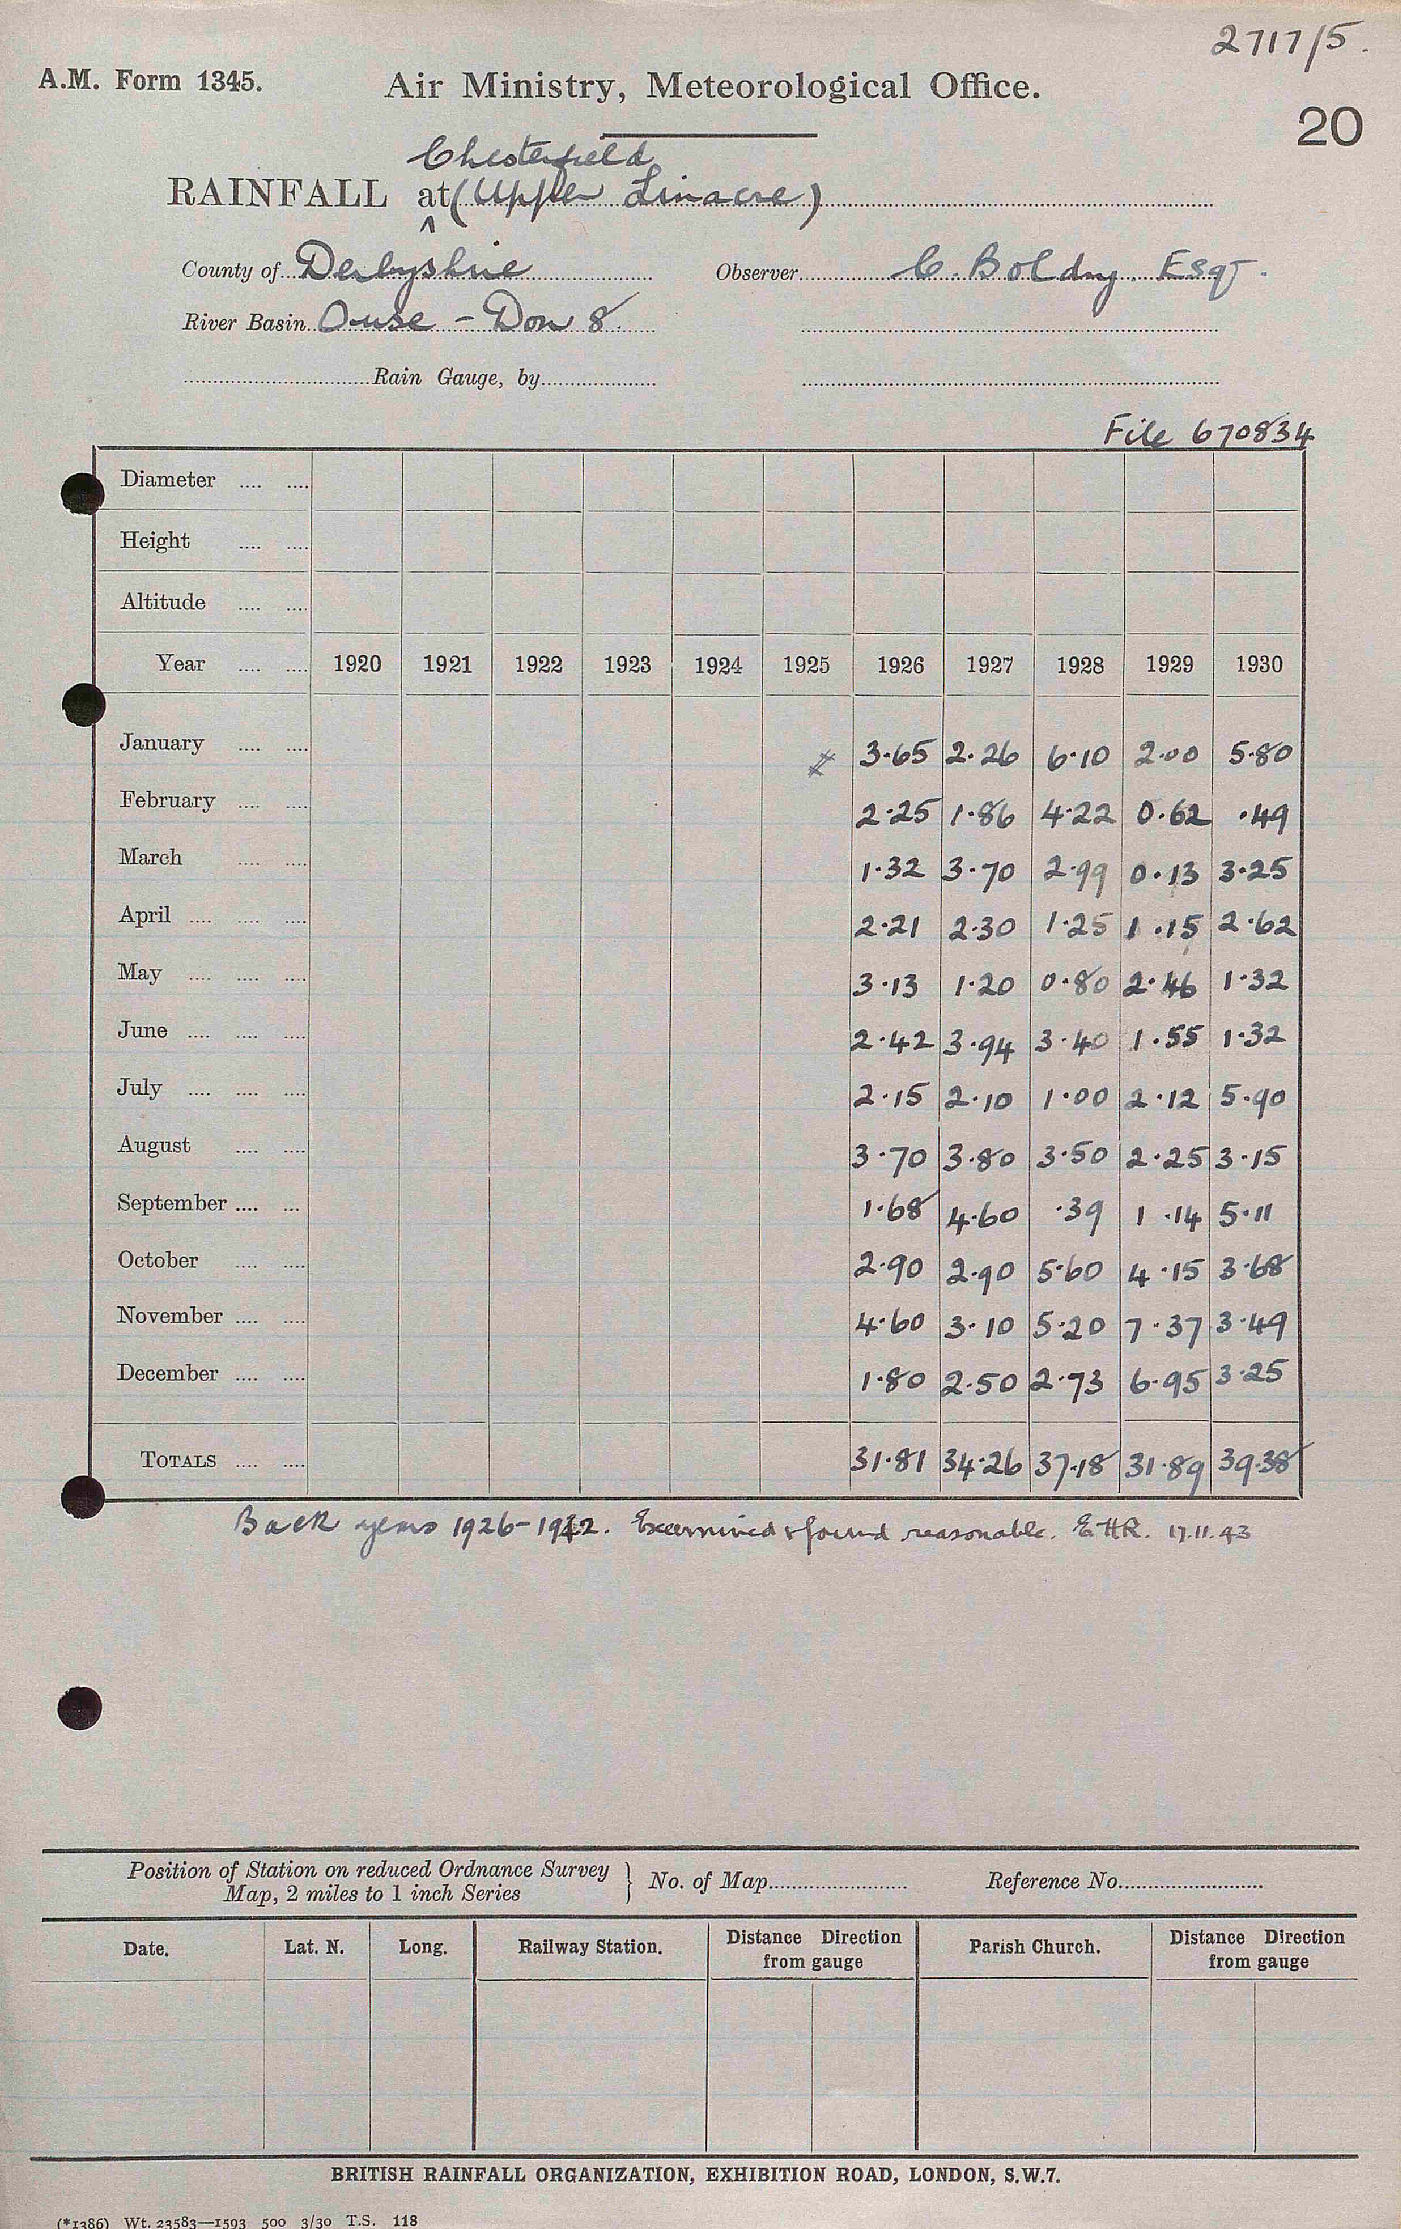 2717/5.
A.M. Form 1345. Air Ministry, Meteorological Office.
20
Chesterfield
RAINFALL at (Upper Linacre)
County of Derbyshire Observer C. Boldry Esqr.
River Basin Ouse - Don 8
Rain Gauge, by
File 670834
Diameter
Height
Altitude
Year 1920 1921 1922 1923 1924 1925 1926 1927 1928 1929 1930
January 3.65 2.26 6.10 2.00 5.80
February 2.25 1.86 4.22 0.62 .49
March 1.32 3.70 2.99 0.13 3.25
April 2.21 2.30 1.25 1.15 2.62
May 3.13 1.20 0.80 2.46 1.32
June 2.42 3.94 3.40 1.55 1.32
July 2.15 2.10 1.00 2.12 5.90
August 3.70 3.80 3.50 2.25 3.15
September 1.68 4.60 .39 1.14 5.11
October 2.90 2.90 5.60 4.15 3.68
November 4.60 3.10 5.20 7.37 3.49
December 1.80 2.50 2.73 6.95 3.25
TOTALS 31.81 34.26 37.18 31.89 39.38
Back years 1926-1942. Examined & found reasonable. EHR. 17.11.43
Position of Station on reduced Ordnance Survey Map, 2 miles to 1 inch Series } No. of Map Reference No.
Date. Lat. N. Long. Railway Station. Distance Direction from gauge Parish Church. Distance Direction from gauge
BRITISH RAINFALL ORGANIZATION, EXHIBITION ROAD, LONDON, S.W.7.
(*1386) Wt. 23583—1593 500 3/30 T.S. 118